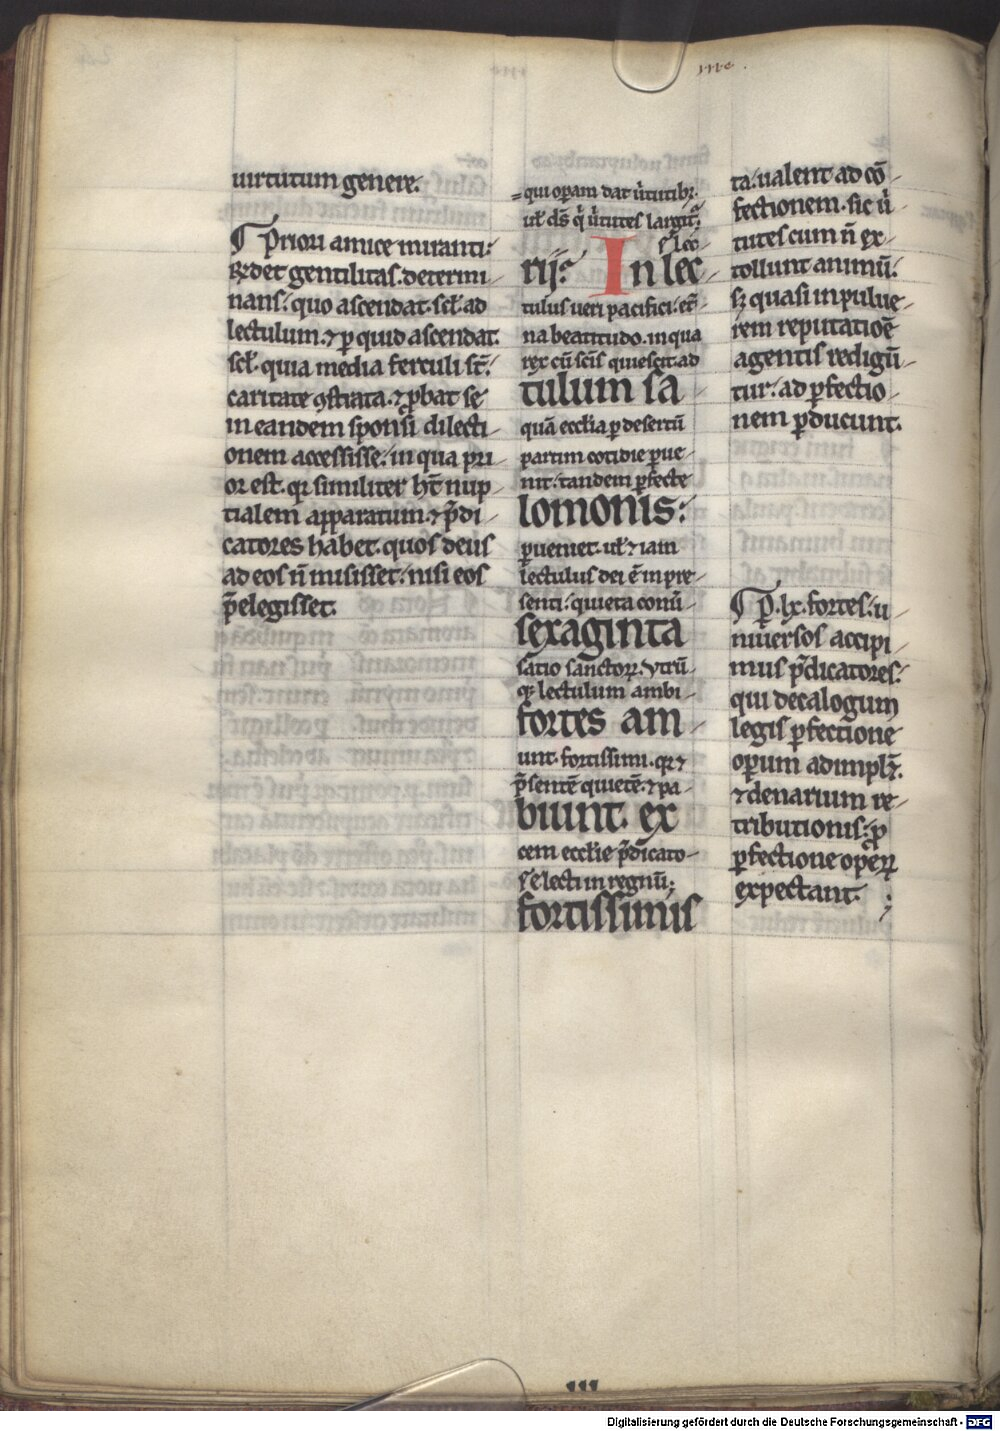 uirtutum genere.
¶ Priori amice miranti:
qr det gentilitas. determi-
nans: quo ascendat. scł. ad
lectulum. ⁊ p quid ascendat.
scł. quia media ferculi st̄:
caritate ꝯstrata. ⁊ ꝓbat se
in eandem sponsi dilecti-
onem accessisse: in qua pri-
or est. qr similiter ht̄ nup-
tialem apparatum. ⁊ p̄di-
catores habet. quos deus
ad eos n̄ misisset: nisi eos
p̄elegisset.
= qui opam dat u̇tutibꝫ.
ul' ds̄ q̇ u̇tutes largit᷑.
rij: In lec
tulus ueri pacifici. et̄-
na beatitudo. in qua
rex cū scīs quiescit. ad
tulum sa-
quā eccłia p desertū
partim cotidie ꝑue-
nit: tandem ꝑfecte
lomonis:
ꝑueniet. ul' ⁊ iam
lectulus dei ē in pre-
senti: quieta conū-
sexaginta
satio sanctoꝝ. ytrū-
qꝫ lectulum ambi-
fortes am-
iunt. fortissimi. qr ⁊
p̄sentē quietē. ⁊ pa-
biunt. ex
cem eccłie p̄dicato-
electi in regnū;
fortissimis
ta: ualent ad cō-
fectionem. sic u̇-
tutes cum n̄ ex-
tollunt animū:
sꝫ quasi in pulue-
rem reputatiōe
agentis redigū-
tur: ad ꝑfectio-
nem ꝑducunt.
¶ P. lx. fortes: u-
niuersos accipi-
mus p̄dicatores:
qui decalogum
legis ꝑfectione
opum adimplēt.
⁊ denarium re-
tributionis: ꝓ
ꝑfectione opeꝝ
expectant. ;
Digitalisierung gefördert durch die Deutsche Forschungsgemeinschaft - DFG